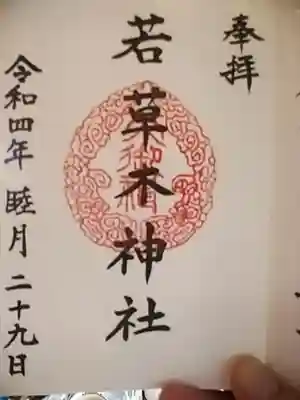 奉拝
若草木神社
令和四年 睦月 二十九日